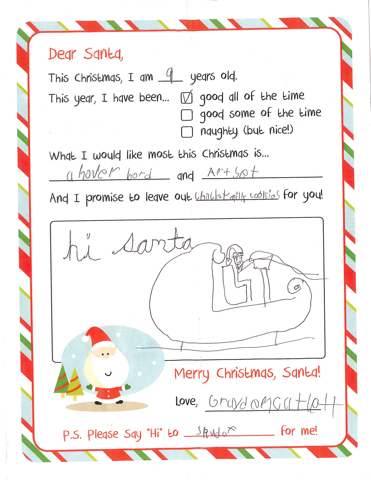 Dear Santa,
This Christmas, I am 9 years old.
This year, I have been... good all of the time
good some of the time
naughty (but nice!)
What I would like most this Christmas is...
a hover bord and Art set
And I promise to leave out cookies for you!
hi santa
Merry Christmas, Santa!
Love,
P.S. Please Say "Hi" to for me!